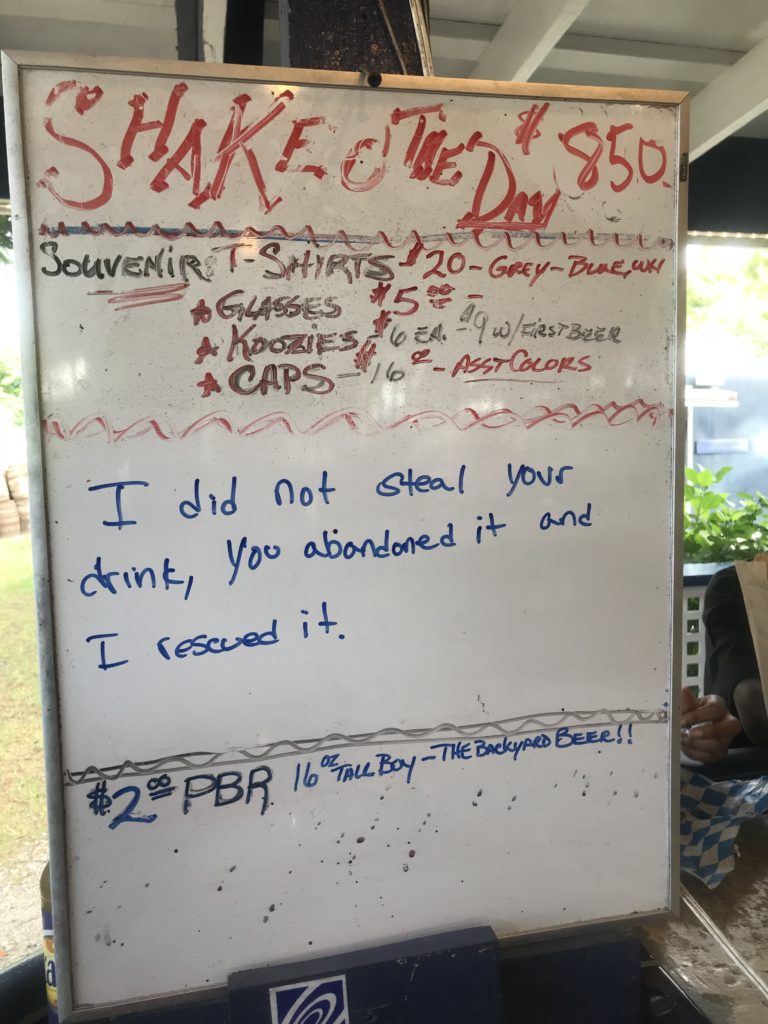 SHAKE O' THE DAY $850.
SOUVENIR T-SHIRTS $20 - GREY - BLUE, WH
GLASSES $5.00 -
KOOZIES $6 EA. - $9 W/ FIRST BEER
CAPS - $16 oz - ASST COLORS
I did not steal your
drink, you abandoned it and
I rescued it.
$2.00 PBR 16 oz TALL BOY - THE BACKYARD BEER!!